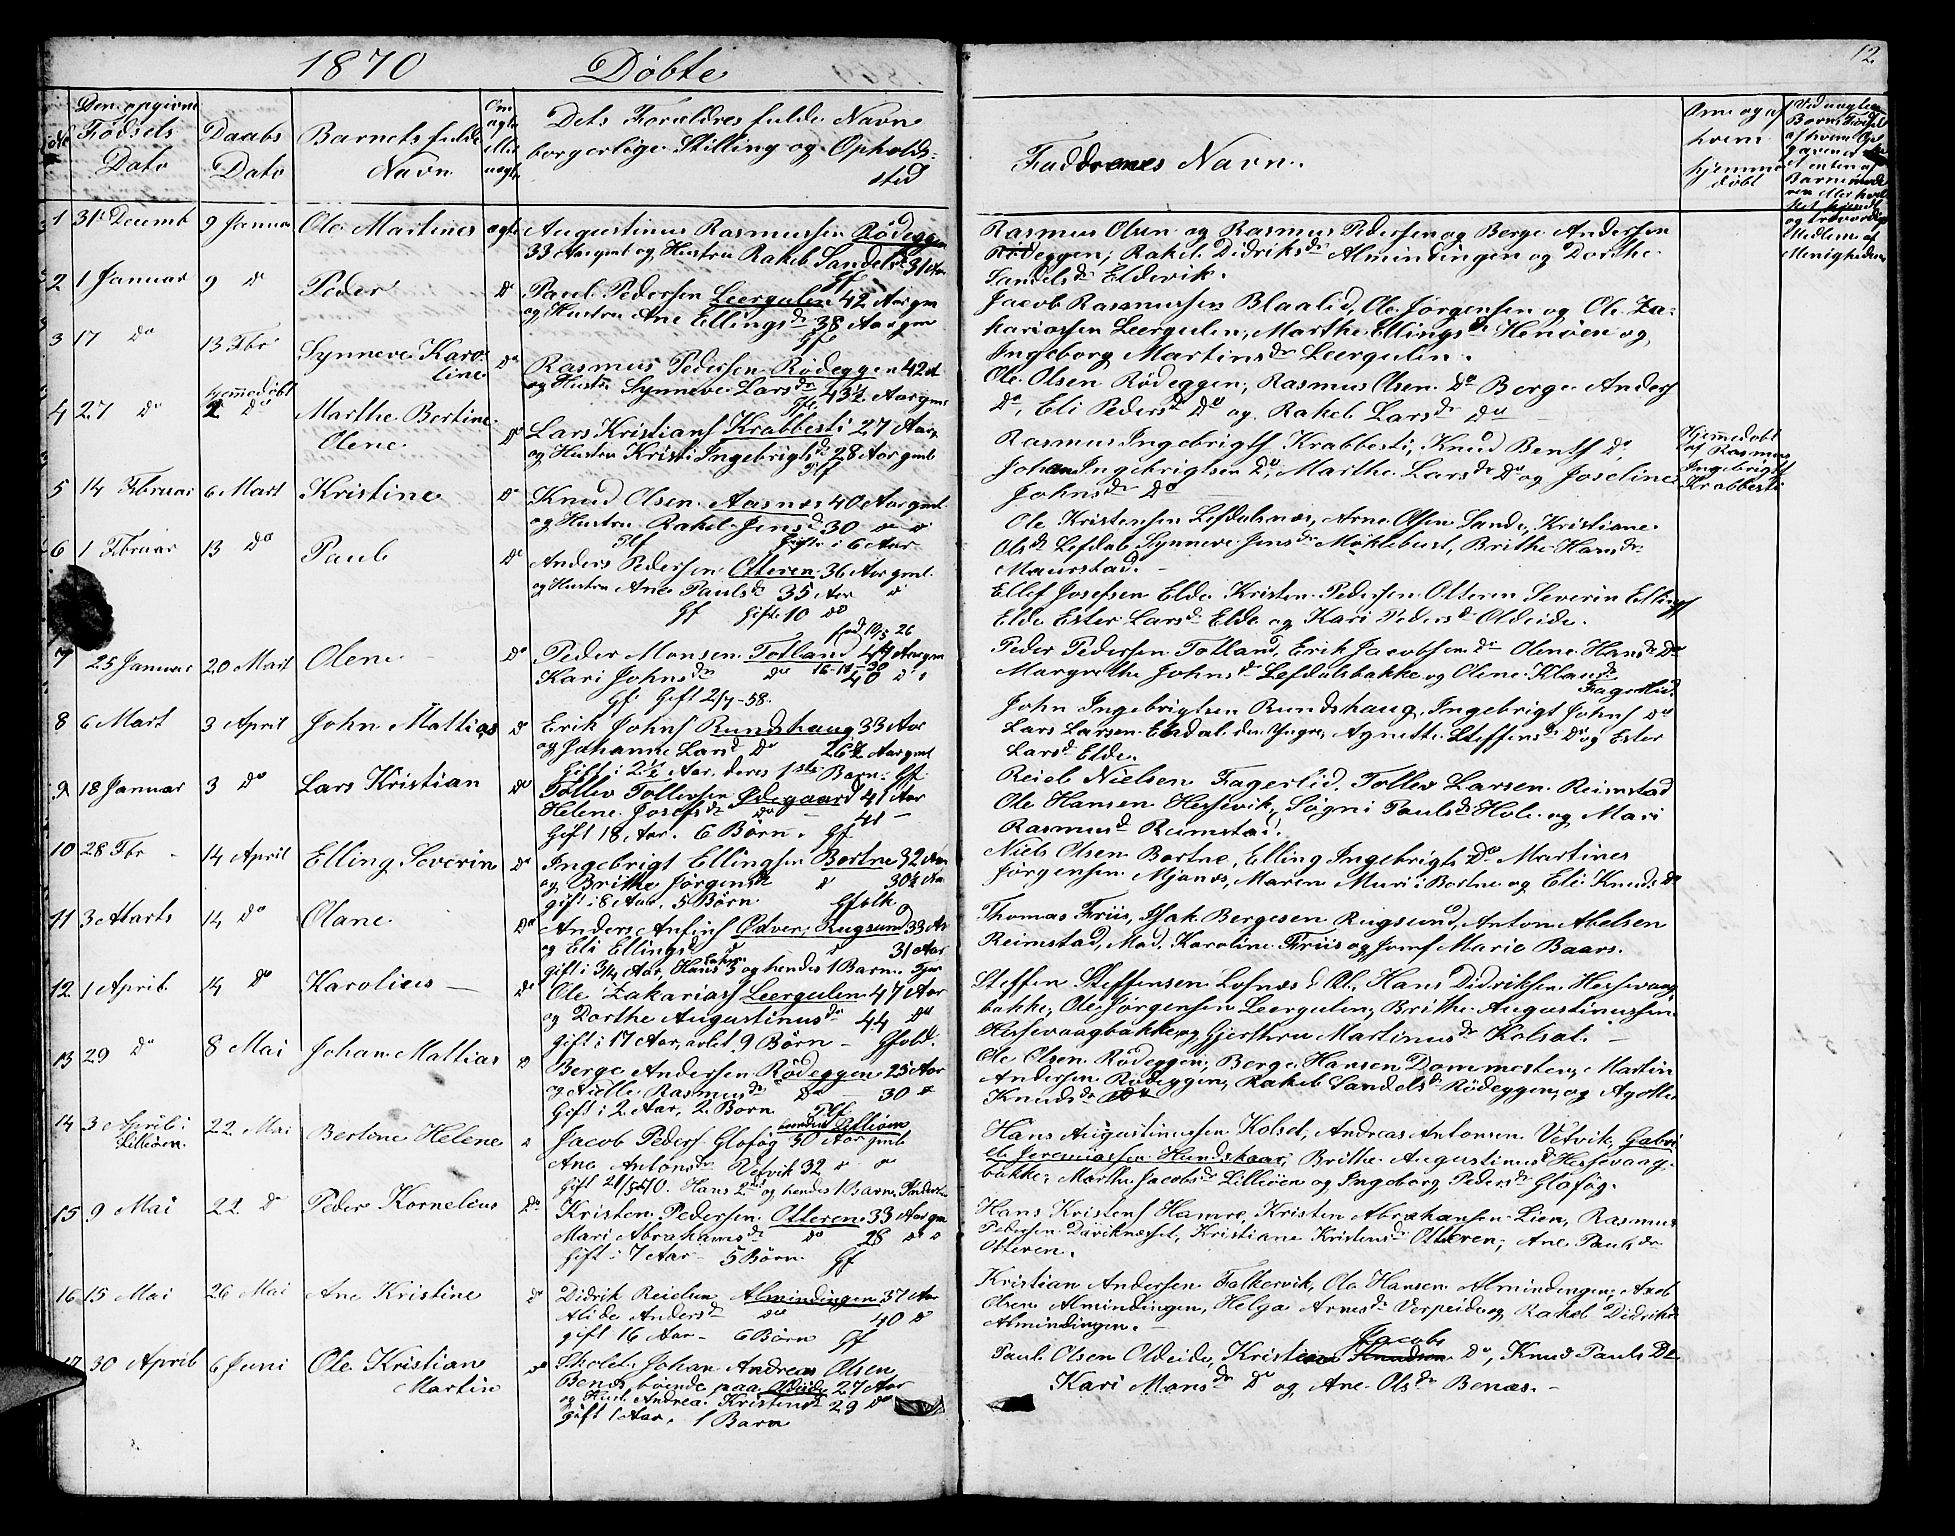 1870 Döbte
12
Den opgivne Fødsels Dato
Daabs Dato
Barnets fulde Navn
Om ægte eller uægte
Dets Forældres fulde Navn borgerlige Stilling og Opholdssted
Faddrenes Navn.
Om og af hvem hjemmedøbt
1 31 Decemb 9 Januar Ole Martines ægte Augustinus Rasmussen Rödeggen
33 Aar gml og Hustru Rakel Sandelsdr 31 Aar
Gf
Rasmus Olsen og Rasmus Pedersen og Berge Andersen
Rödeggen, Rakel Didriksdr Almindingen og Dorthe
Sandelsdr Eldevik.
2 1 Januar 9 do Peder do Paul Pedersen Leergulen 42 Aar gm
og Hustru Ane Ellingsdr 38 Aar gm
Gf
Jacob Rasmussen Blaalid, Ole Jørgensen og Ole Za-
kariassen Leergulen, Marthe Ellingsdr Henöen og
Ingeborg Martinsdr Leergulen.
3 17 do 13 Fbr Synneve Karoline do Rasmus Pedersen Rödeggen 42 A
og Hustru Synneve Larsdr 43½ Aar gml
Gf
Ole Olsen Rödeggen, Rasmus Olsen do Berge Anders
do, Eli Pedersdr do og Rakel Larsdr do
4 27 do hjemmedöbt 2 do Marthe Bertine Olene do Lars Kristians Krabbesti 27 Aar
og Hustru Kristi Ingebrigtsdr 28 Aar gml
Rasmus Ingebrigts Krabbesti, Knud Bents do,
Johan Ingebrigtsen do, Marthe Larsdr do og Joseline
Johnsdr do
Hjemmedöbt af Rasmus Ingebrigts Krabbesti
5 14 Februar 6 Mart Kristine do Knud Olsen Aasnes 40 Aar gml
og Hustru Rakel Jensdr 30 do do
Gifte i 6 Aar
Ole Kristensen Lefdalsnæs, Arne Olsen Sande, Kristiane
Olsdr Lefdal Synneve Jensdr Möklebust, Brithe Hansdr
Maurstad.
6 1 Februar 13 do Paul do Anders Pedersen Otteren 36 Aar gml.
og Hustru Ane Paulsdr 35 Aar
Gf Gifte 10 do
Ellef Josefsen Elde Kristen Pedersen Otteren Severin Ellings
Elde Ester Larsdr Elde og Kari Pedersdr Oldeide.
7 25 Januar 20 Mart Olene do Peder Monsen Totland 44 Aar gm
Kari Johnsdr do 40 do
Gf. Gift 2/7-58.
Peder Pedersen Totland, Erik Jacobsen do Olene Hansdr do
Margrethe Johnsdr Lefdalsbakke og Olene Klausdr
Fagerlid.
8 6 Mart 3 April John Mathias do Erik Johns Rundshaug 33 Aar
og Johanne Larsdr do 26½ Aar gml
Gift i 2½ Aar, deres 1ste Barn. Gf.
John Ingebrigtsen Rundshaug, Ingebrigt Johns do
Lars Larsen Endal den Yngre, Agnette Steffensdr do og Ester
Larsdr Elde.
9 18 Januar 3 do Lars Kristian do Tollev Tollevsen Ödegaard 41 Aar
Helene Josefsdr do 41
Gift 18 Aar. 6 Börn. Gf
Reiel Nielsen Fagerlid, Tollev Larsen Reimstad
Ole Hansen Hessevik, Sögni Paulsdr Hole og Mari
Rasmusdr Reimstad.
10 28 Fbr 14 April Elling Severin do Ingebrigt Ellingsen Bortne 32 Aar
og Brithe Jørgensdr do 30½ Aar
Gift i 8 Aar. 5 Börn Gfolk
Niels Olsen Bortne, Elling Ingebrigts do Martines
Jørgensen Mjanæs, Maren Muri i Bortne og Eli Knudsdr do
11 3 Marts 14 do Olane do Anders Anfins Odver, Rugsund 33 Ar
og Eli Ellingsdr 31 Aar
Gift i 3/4 Aar, Hans 3 og hendes 1 Barn.
Thomas Friis, Isak Bergesen Rugsund, Anton Abelsen
Reimstad, Mad. Karoline Friis og Jomf Marie Baars.
12 1 April 14 do Karolius do Ole Zakarias Leergulen 47 Aar
og Dorthe Augustinusdr 44 do
Gift i 17 Aar, avlet 9 Börn Gfold.
Steffen Steffensen Lofnæs, Hans Didriksen Hessevaag
bakke, Ole Jørgensen Leergulen, Brithe Augustinussen
Hessevaagbakke, og Gjerthru Martinusdr Kolset.
13 29 do 8 Mai Johan Mathias do Berge Andersen Rödeggen 25 Aar
og Rasmusdr do 30 do
Gift i 2 Aar, 2 Börn
Ole Olsen Rödeggen, Berge Hansen Dommesten, Martin
Andersen Rödeggen, Rakel Sandelsdr Rödeggen, og Agothe
Knudsdr do
14 3 April i Lillöen 22 Mai Bertine Helene Jacob Peders Glofög 30 Aar gml
Ane Antonsdr Vetvik 32 do do
Hans Augustinussen Kolset, Andreas Antonsen Vetvik, Gabri
el Jeremiassen Hundskaar, Brithe Augustinusdr Hessevaag-
bakke, Marthe Jacobsdr Lillöen og Ingeborg Pedersdr Glofög.
15 9 Mai 22 do Peder Kornelius do Kristen Pedersen Otteren 33 Aar gm
Mari Abrahamsdr do 28 do do
Gift i 7 Aar 5 Börn Gf
Hans Kristens Hamre, Kristen Abrahamsen Lien, Rasmus
Pedersen Davikneset, Kristiane Kristensdr Otteren, Ane Paulsdr
Otteren.
16 15 Mai 26 Mai Ane Kristine do Didrik Reielsen Almindingen 37 Aar
Alide Andersdr do 40 do
gift 16 Aar 6 Börn Gf
Kristian Andersen Falkevik, Ole Hansen Almindingen, Axel
Olsen Almindingen, Helga Arnesdr Verpeide og Rakel Didriksdr
Almindingen.
17 30 April 6 Juni Ole Kristian Martin do Skolel. Johan Andreas Olsen
Benæs boende paa Oldeide 27 Aar
og Hust. Andrea Kristensdr 29 do
gift 1 Aar. 1 Barn
Paul Olsen Oldeide, Kristian Jacobs do, Knud Pauls do
Kari Monsdr do og Ane Olsdr Benæs.